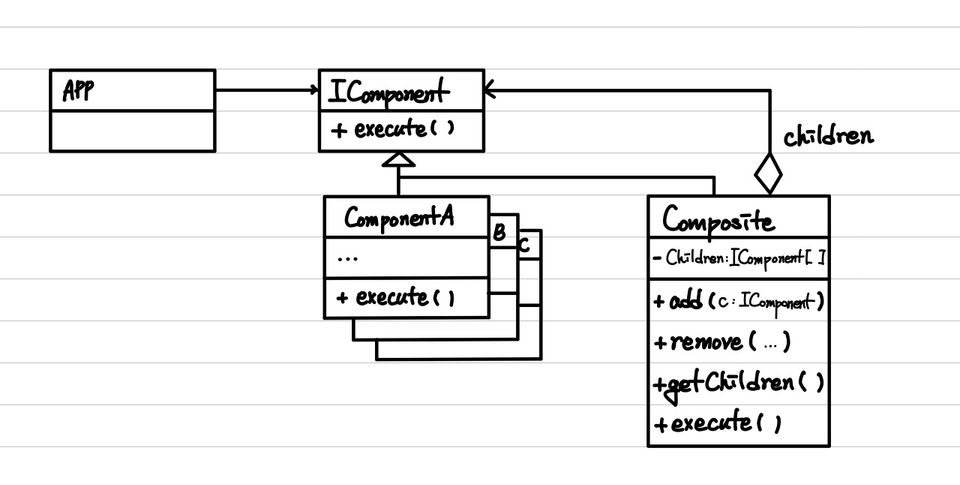 APP
IComponent
+ execute( )
children
ComponentA
...
+ execute( )
B
C
Composite
- Children:IComponent[ ]
+ add(c: IComponent)
+ remove(...)
+ getChildren( )
+ execute( )